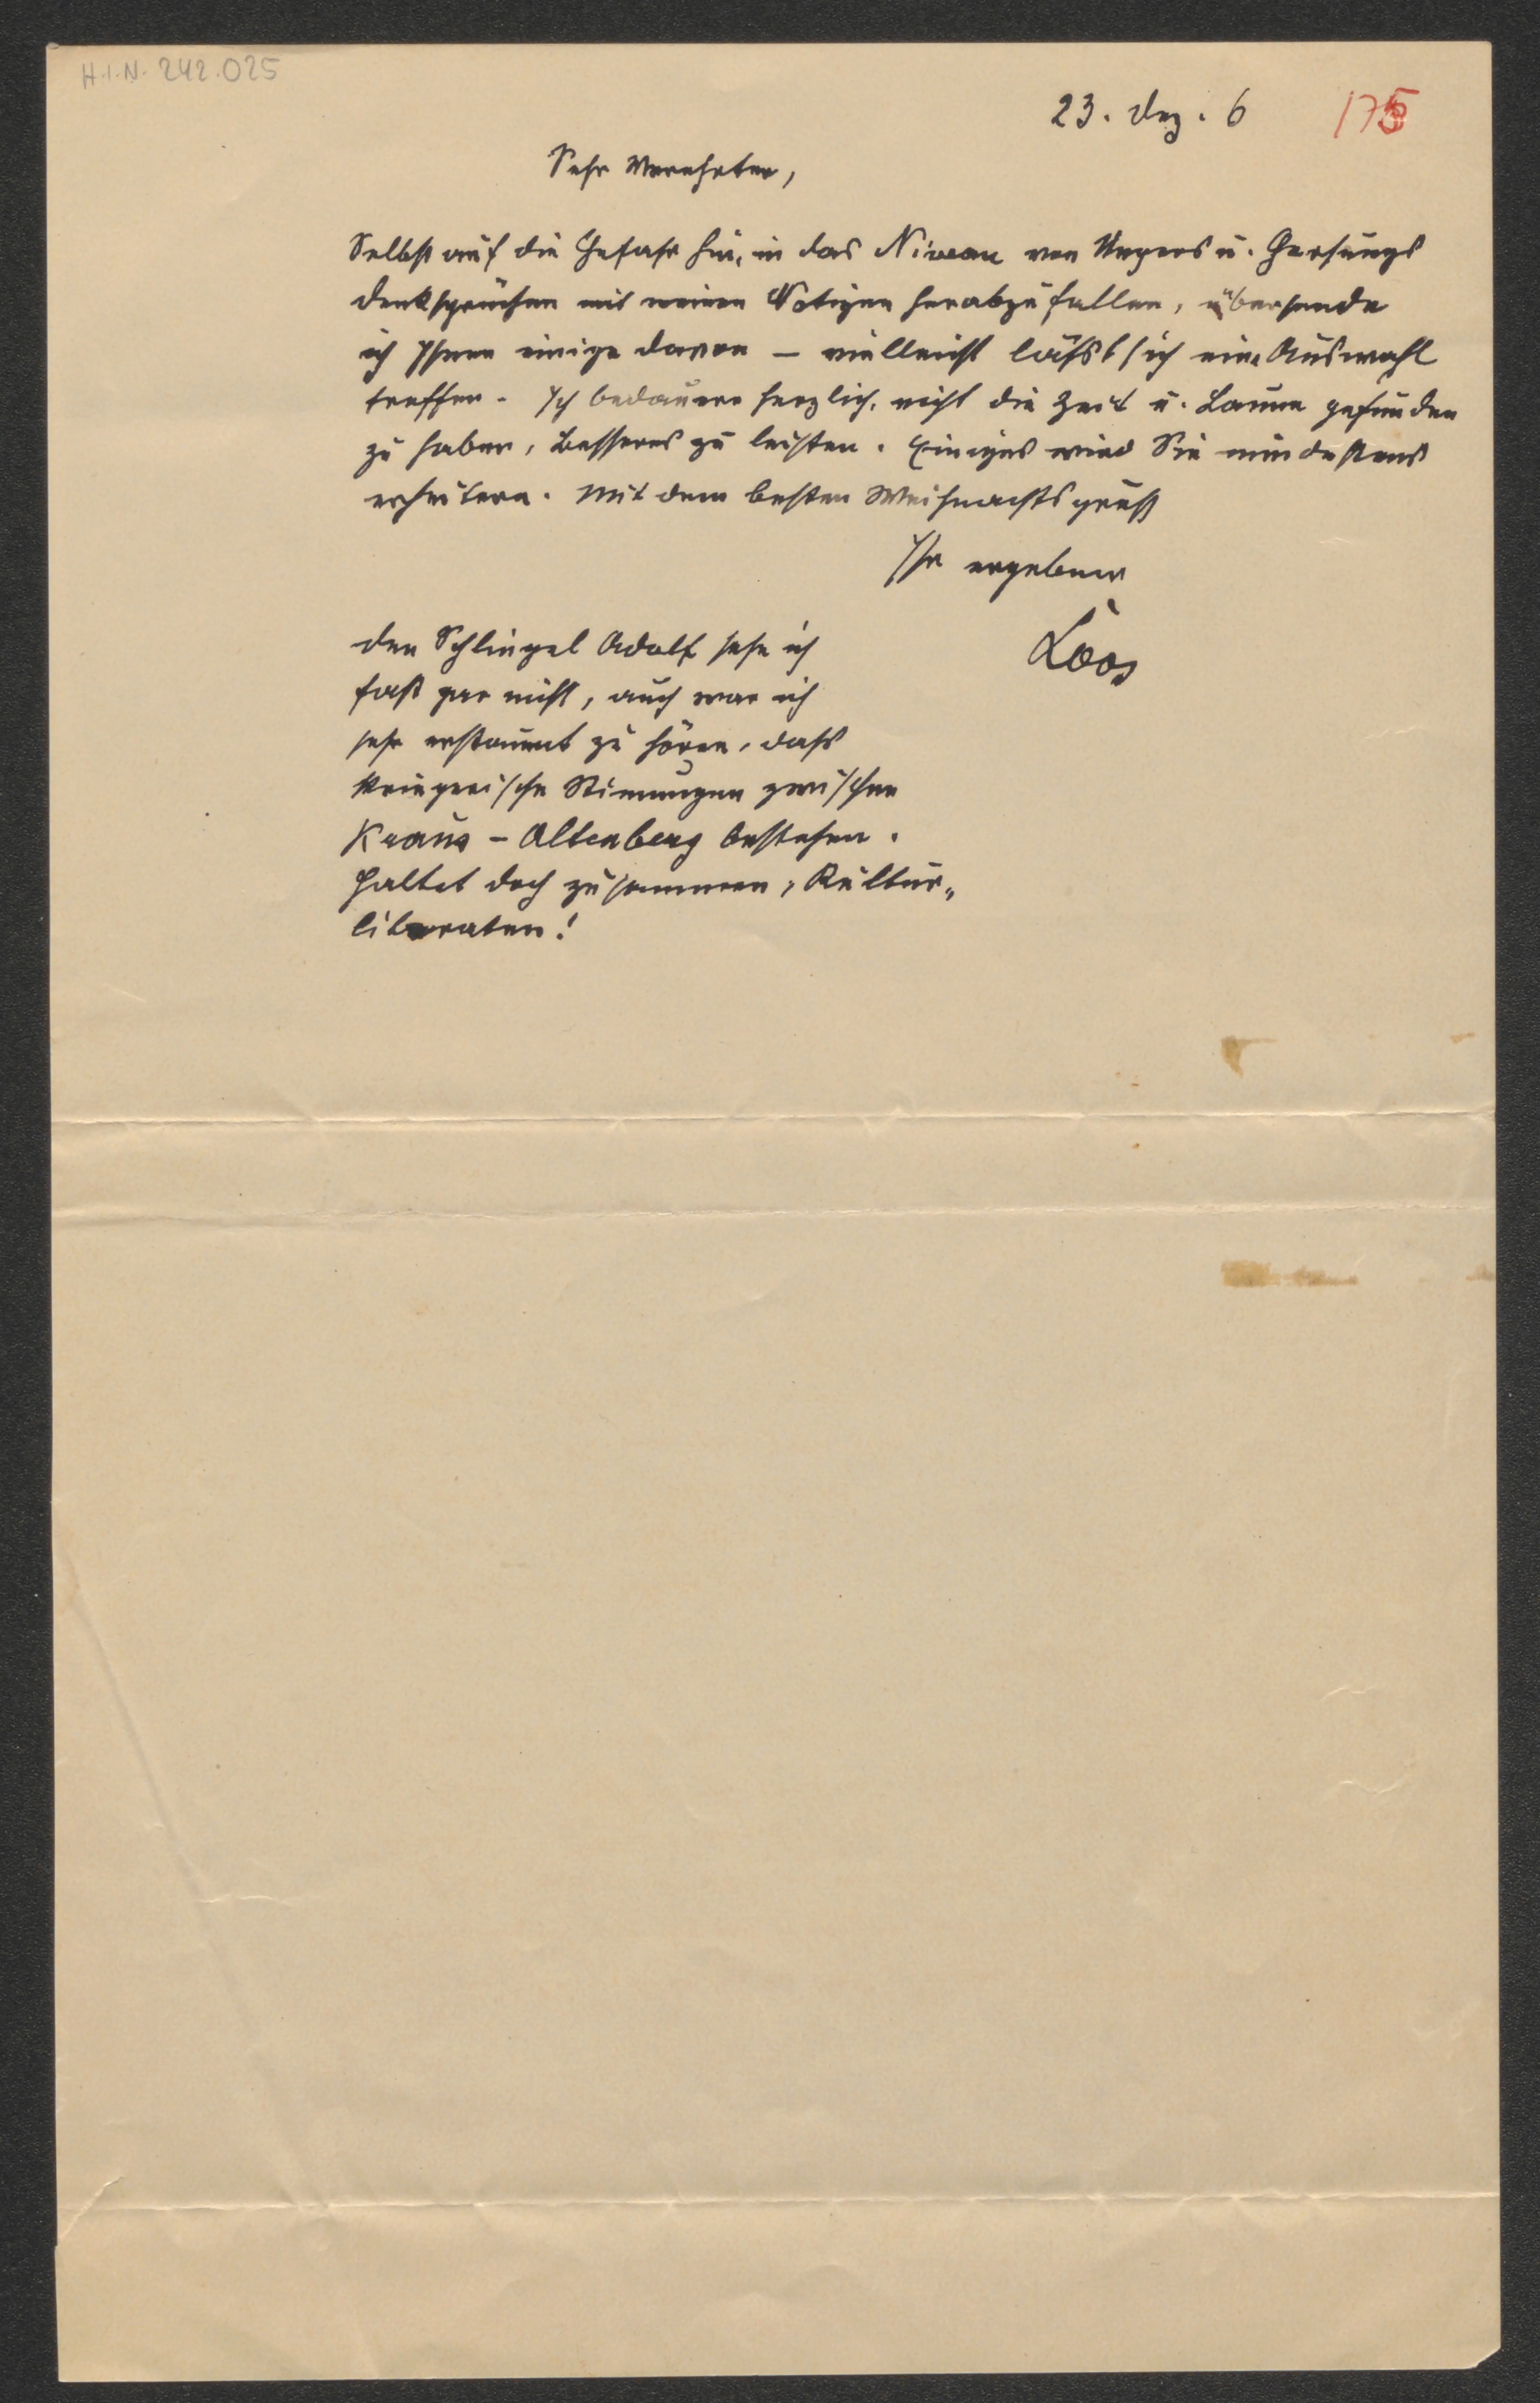 H.I.N. 242.025
23. Dez. 6
175
Sehr Verehrter,
Selbst auf die Gefahr hin, in das Niveau von u. Gersungs
denksprüchen mit meinen Notizen herabzufallen, übersende
ich Ihnen einige davon – vielleicht läßt sich eine Auswahl
treffen. Ich bedauere herzlich, nicht die Zeit u. Laune gefunden
zu haben, Besseres zu leisten. Einiges wird Sie mindestens
erheitern. Mit dem besten Weihnachtsgruß
Ihr ergebener
Loos
den Schlingel Adolf sehe ich
fast gar nicht, auch war ich
sehr erstaunt zu hören, dass
kriegerische Stimungen zwischen
Kraus – Altenberg bestehen.
Haltet doch zusammen, Kultur„
literaten!